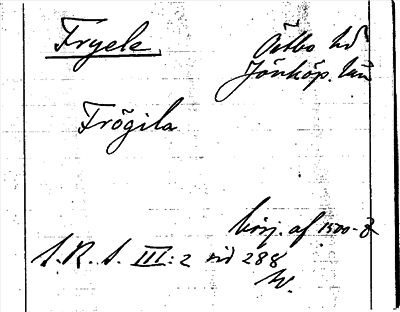 Fryele
Östbo hd
Jönköp. län
Frögila
börj. af 1500-t
S.R.S. III:2 sid 288
W.